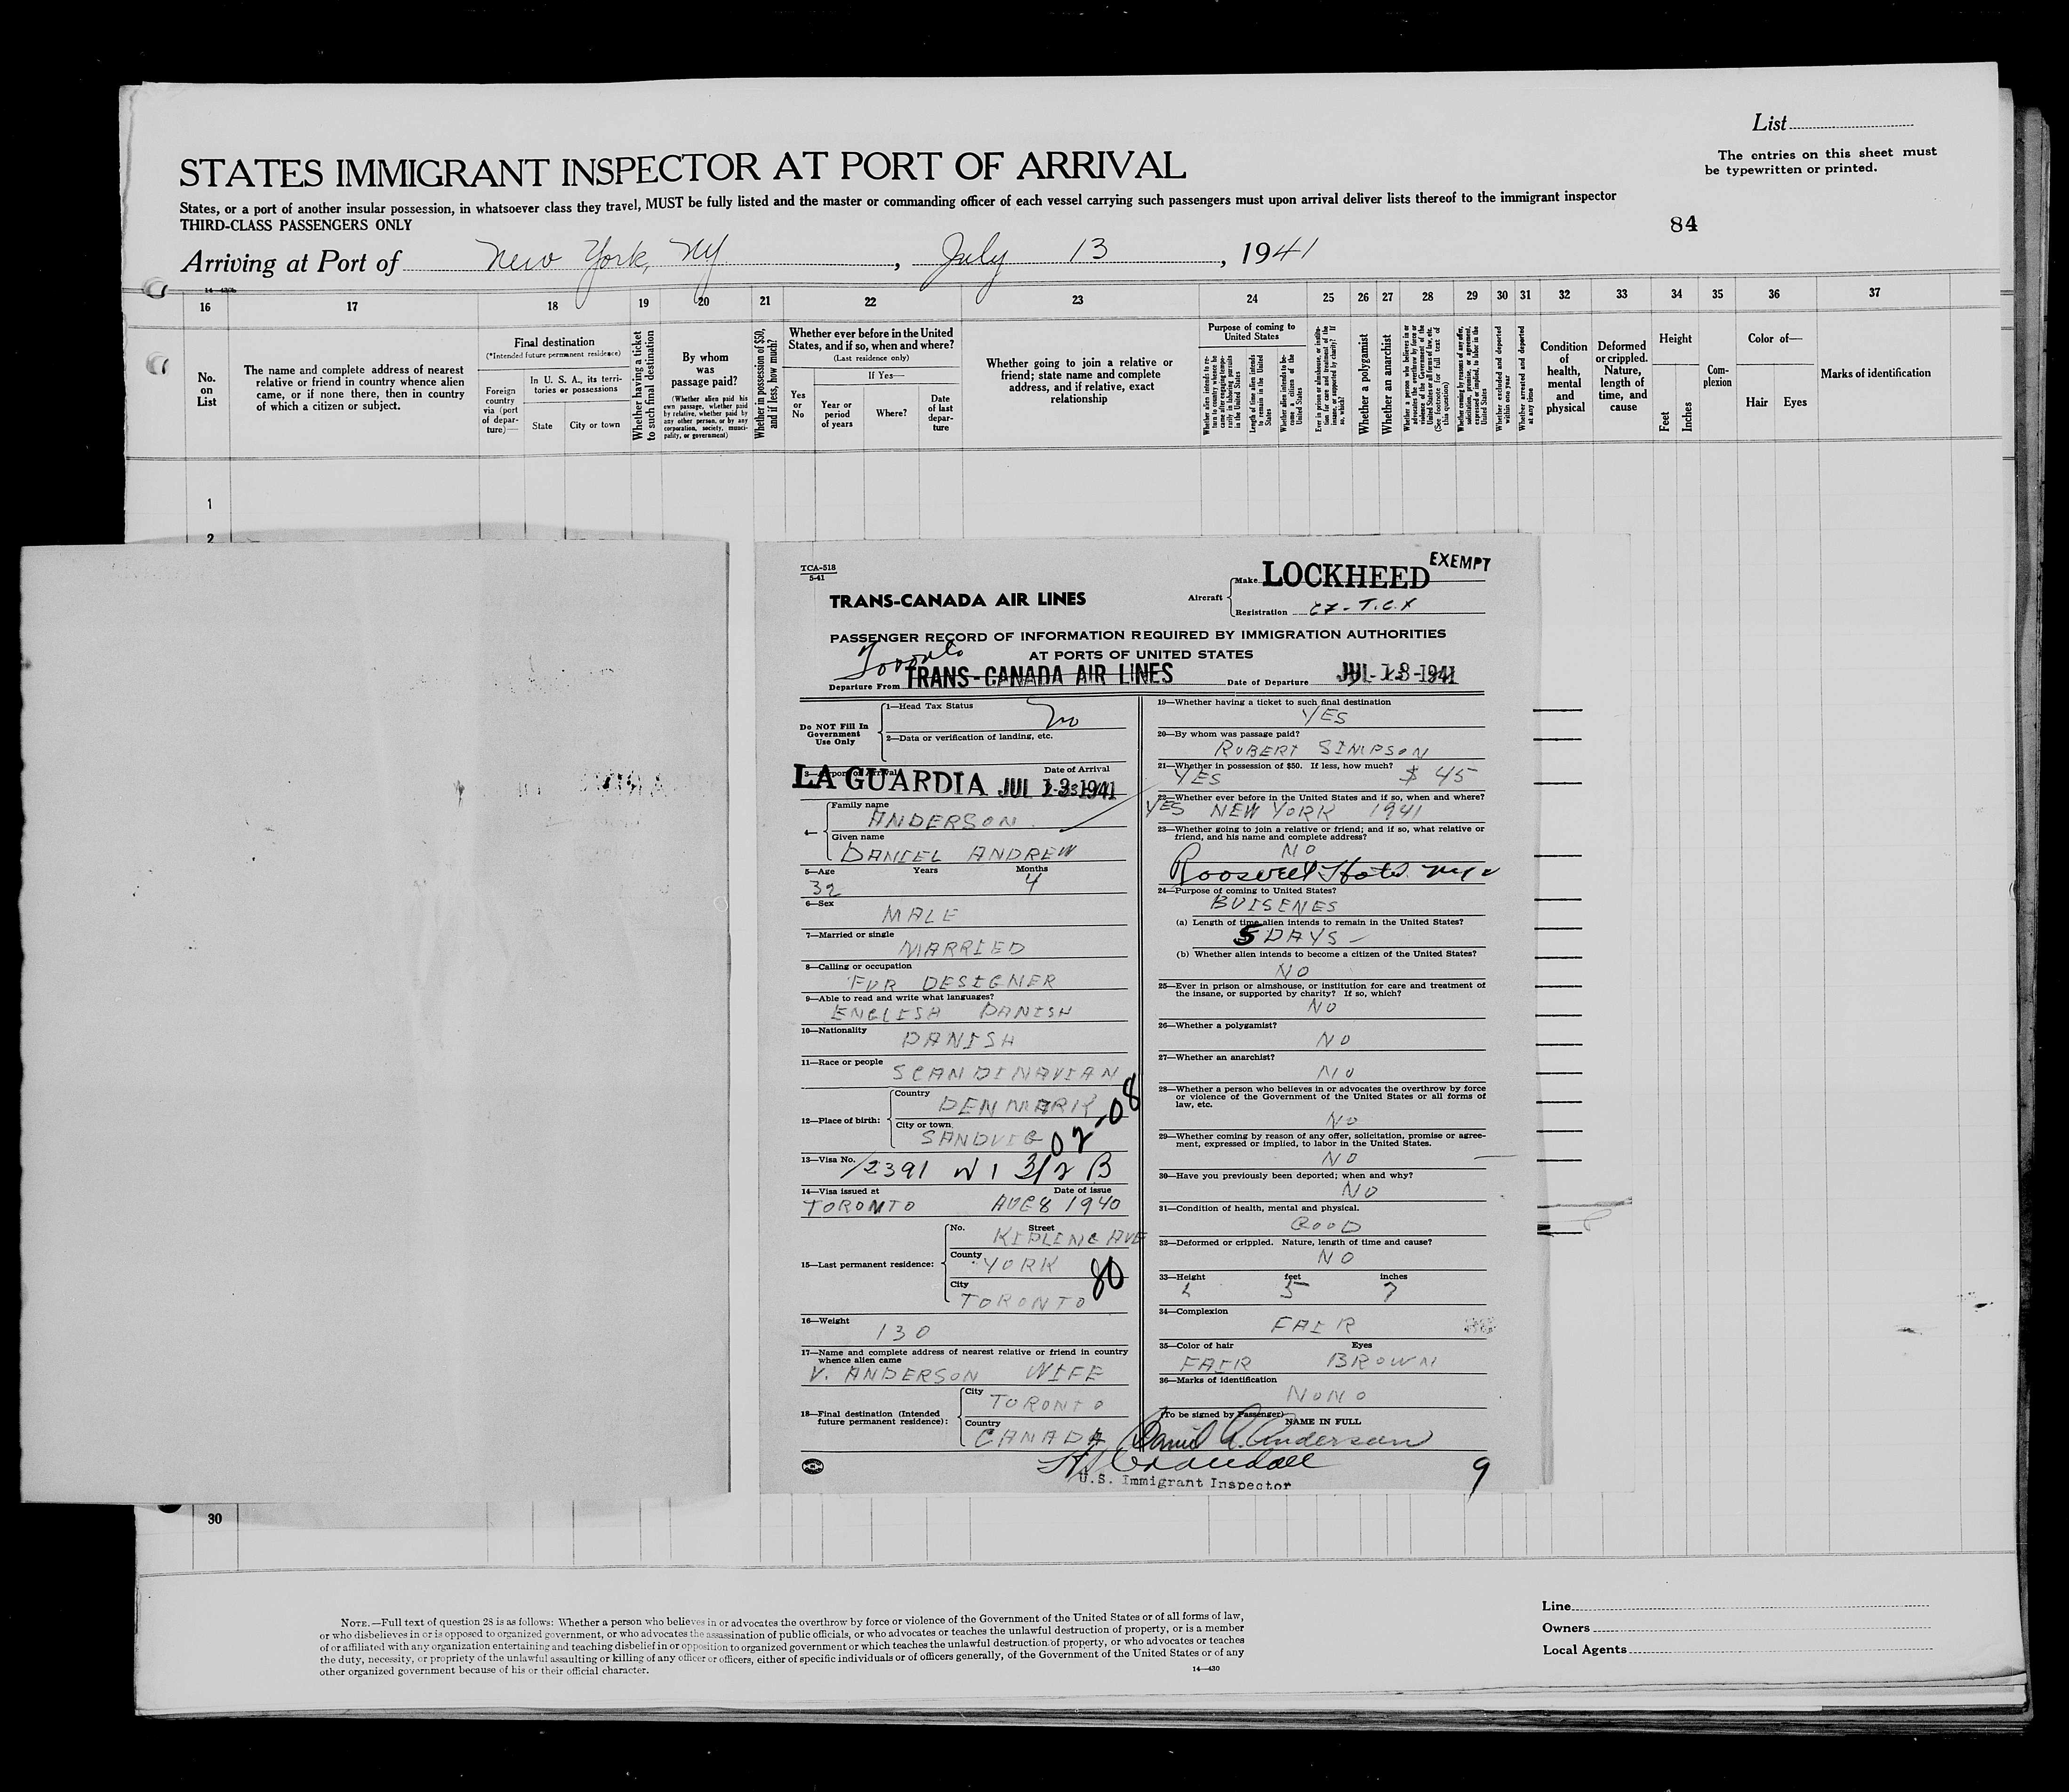 List
The entries on this sheet must
be typewritten or printed.
STATES IMMIGRANT INSPECTOR AT PORT OF ARRIVAL
States, or a port of another insular possession, in whatsoever class they travel, MUST be fully listed and the master or commanding officer of each vessel carrying such passengers must upon arrival deliver lists thereof to the immigrant inspector
THIRD-CLASS PASSENGERS ONLY
84
Arriving at Port of New York, NY, July 13, 1941
16 17 18 19 20 21 22 23 24 25 26 27 28 29 30 31 32 33 34 35 36 37
No. on List
The name and complete address of nearest relative or friend in country whence alien came, or if none there, then in country of which a citizen or subject.
Final destination
(*Intended future permanent residence)
Foreign country via (port of departure)—
In U. S. A., its territories or possessions
State City or town
Whether having a ticket to such final destination
By whom was passage paid?
(Whether alien paid his own passage, whether paid by relative, whether paid by any other person, or by any corporation, society, municipality, or government)
Whether in possession of $50, and if less, how much?
Whether ever before in the United States, and if so, when and where?
(Last residence only)
If Yes—
Yes or No
Year or period of years
Where?
Date of last departure
Whether going to join a relative or friend; state name and complete address, and if relative, exact relationship
Purpose of coming to United States
Length of time alien intends to remain in the United States
Whether alien intends to become a citizen of the United States
Whether a polygamist
Whether an anarchist
Whether excluded and deported within one year
Whether arrested and deported at any time
Condition of health, mental and physical
Deformed or crippled. Nature, length of time, and cause
Height
Feet Inches
Complexion
Color of—
Hair Eyes
Marks of identification
1
2
TCA-518
5-41
TRANS-CANADA AIR LINES
Aircraft
Make LOCKHEED
EXEMPT
Registration CF-T.C.X
PASSENGER RECORD OF INFORMATION REQUIRED BY IMMIGRATION AUTHORITIES
AT PORTS OF UNITED STATES
Toronto
Departure From TRANS-CANADA AIR LINES
Date of Departure JUL 13 1941
Do NOT Fill In Government Use Only
1—Head Tax Status
No
2—Data or verification of landing, etc.
3—Airport of Arrival Date of Arrival
LA GUARDIA JUL 13 1941
4—
Family name
ANDERSON
Given name
DANIEL ANDREW
5—Age Years Months
32 4
6—Sex
MALE
7—Married or single
MARRIED
8—Calling or occupation
FUR DESIGNER
9—Able to read and write what languages?
ENGLISH DANISH
10—Nationality
DANISH
11—Race or people
SCANDINAVIAN
12—Place of birth:
Country
DENMARK
City or town
SANDVIG
02-08
13—Visa No.
12391 W 1 3/2 B
14—Visa issued at Date of issue
TORONTO AUG 8 1940
15—Last permanent residence:
No. Street
KIPLING AVE
County
YORK
80
City
TORONTO
16—Weight
130
17—Name and complete address of nearest relative or friend in country
whence alien came
V. ANDERSON WIFE
18—Final destination (Intended
future permanent residence):
City
TORONTO
Country
CANADA
19—Whether having a ticket to such final destination
YES
20—By whom was passage paid?
ROBERT SIMPSON
21—Whether in possession of $50. If less, how much?
YES $ 45
22—Whether ever before in the United States and if so, when and where?
YES NEW YORK 1941
23—Whether going to join a relative or friend; and if so, what relative or
friend, and his name and complete address?
NO
Roosevelt Hotel NYC
24—Purpose of coming to United States?
BUISENES
(a) Length of time alien intends to remain in the United States?
5 DAYS
(b) Whether alien intends to become a citizen of the United States?
NO
25—Ever in prison or almshouse, or institution for care and treatment of
the insane, or supported by charity? If so, which?
NO
26—Whether a polygamist?
NO
27—Whether an anarchist?
NO
28—Whether a person who believes in or advocates the overthrow by force
or violence of the Government of the United States or all forms of
law, etc.
NO
29—Whether coming by reason of any offer, solicitation, promise or agree-
ment, expressed or implied, to labor in the United States.
NO
30—Have you previously been deported; when and why?
NO
31—Condition of health, mental and physical.
GOOD
32—Deformed or crippled. Nature, length of time and cause?
NO
33—Height feet inches
5 7
34—Complexion
FAIR
35—Color of hair Eyes
FAIR BROWN
36—Marks of identification
NONO
(To be signed by Passenger) NAME IN FULL
Daniel A. Anderson
Crandall
U.S. Immigrant Inspector
9
30
NOTE.—Full text of question 28 is as follows: Whether a person who believes in or advocates the overthrow by force or violence of the Government of the United States or of all forms of law,
or who disbelieves in or is opposed to organized government, or who advocates the assassination of public officials, or who advocates or teaches the unlawful destruction of property, or is a member
of or affiliated with any organization entertaining and teaching disbelief in or opposition to organized government or which teaches the unlawful destruction of property, or who advocates or teaches
the duty, necessity, or propriety of the unlawful assaulting or killing of any officer or officers, either of specific individuals or of officers generally, of the Government of the United States or of any
other organized government because of his or their official character.
14—430
Line
Owners
Local Agents